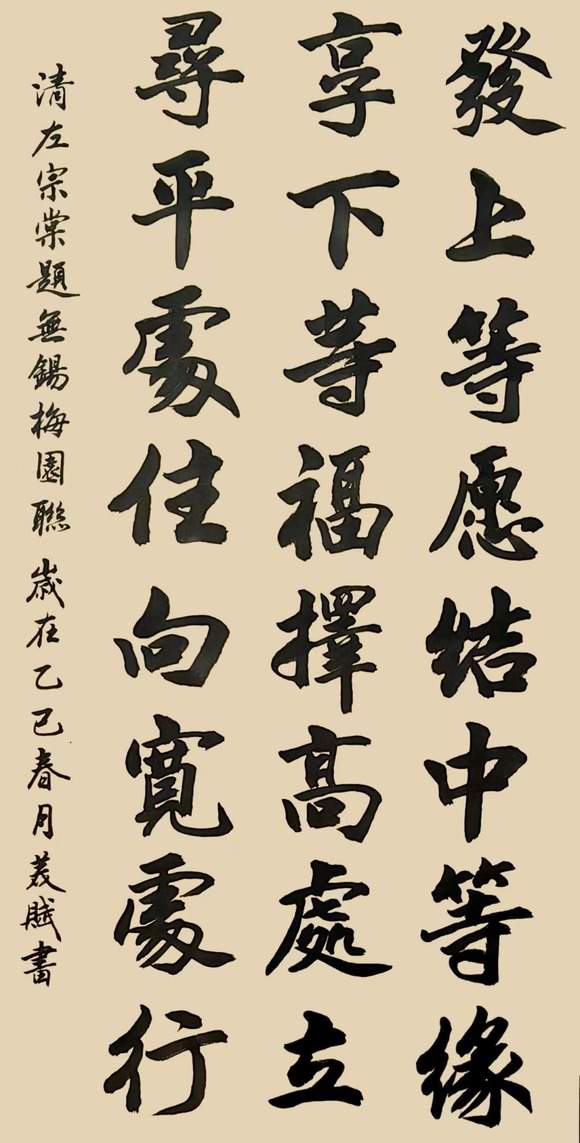 發上等愿結中等緣
享下等福擇高處立
尋平處住向寬處行
清左宗棠題無錫梅園聯歲在乙巳春月美賦書